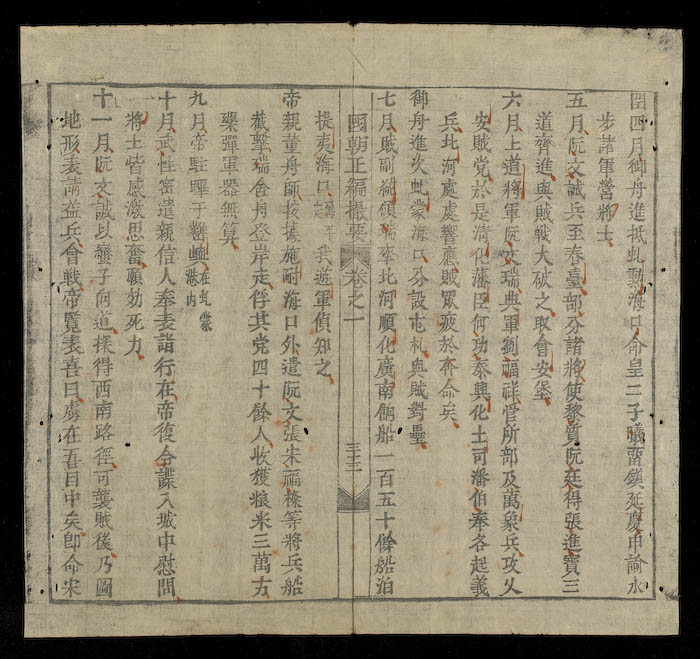 閏四月御舟進抵虬勳海口命皇二子曦畱鎮延慶申諭水
步諸軍營將士
五月阮文誠兵至春臺部分諸將使黎質阮廷得張進寶三
道齊進與賊戰大破之取會安堡
六月上道將軍阮文瑞典軍劉福祥管所部及萬象兵攻乂
安賊党於是清化藩臣何功泰興化土司潘伯奉各起義
兵北河處處響應賊眾疲於奔命矣
御舟進次虬蒙海口分設屯札與賊對壘
七月賊副統領瑞率北河順化廣南餉船一百五十餘船泊
國朝正編撮要 卷之一 三十三
提夷海口 我遊軍偵知之
帝親董舟師按據施耐海口外遣阮文張宋福樑等將兵船
截擊瑞舍舟登岸走俘其党四十餘人收獲粮米三萬方
藥彈軍器無算
九月帝駐蹕于 嶼在虬蒙港內
十月武性密遣親信人奉表詣行在帝復令諜入城中慰問
將士皆感激思奮願効死力
十一月阮文誠以蠻子向道採得西南路徑可襲賊後乃圖
地形表請益兵會戰帝覽表喜曰虜在吾目中矣即命宋